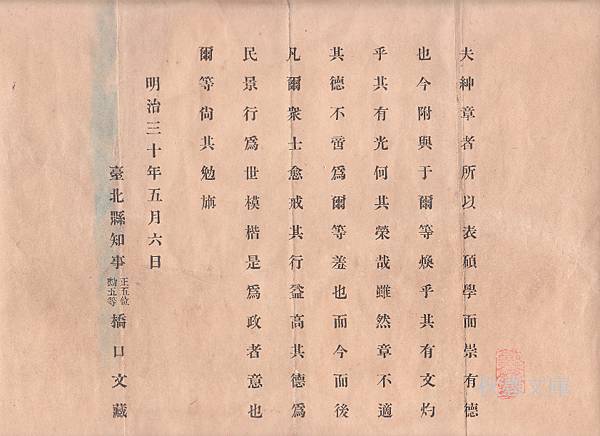 夫紳章者所以表碩學而崇有德
也今附與于爾等煥乎其有文灼
乎其有光何其榮哉雖然章不適
其德不啻爲爾等羞也而今而後
凡爾衆士愈戒其行益高其德爲
民景行爲世模楷是爲政者意也
爾等尙其勉旃
明治三十年五月六日
臺北縣知事正五位勳五等橋口文藏